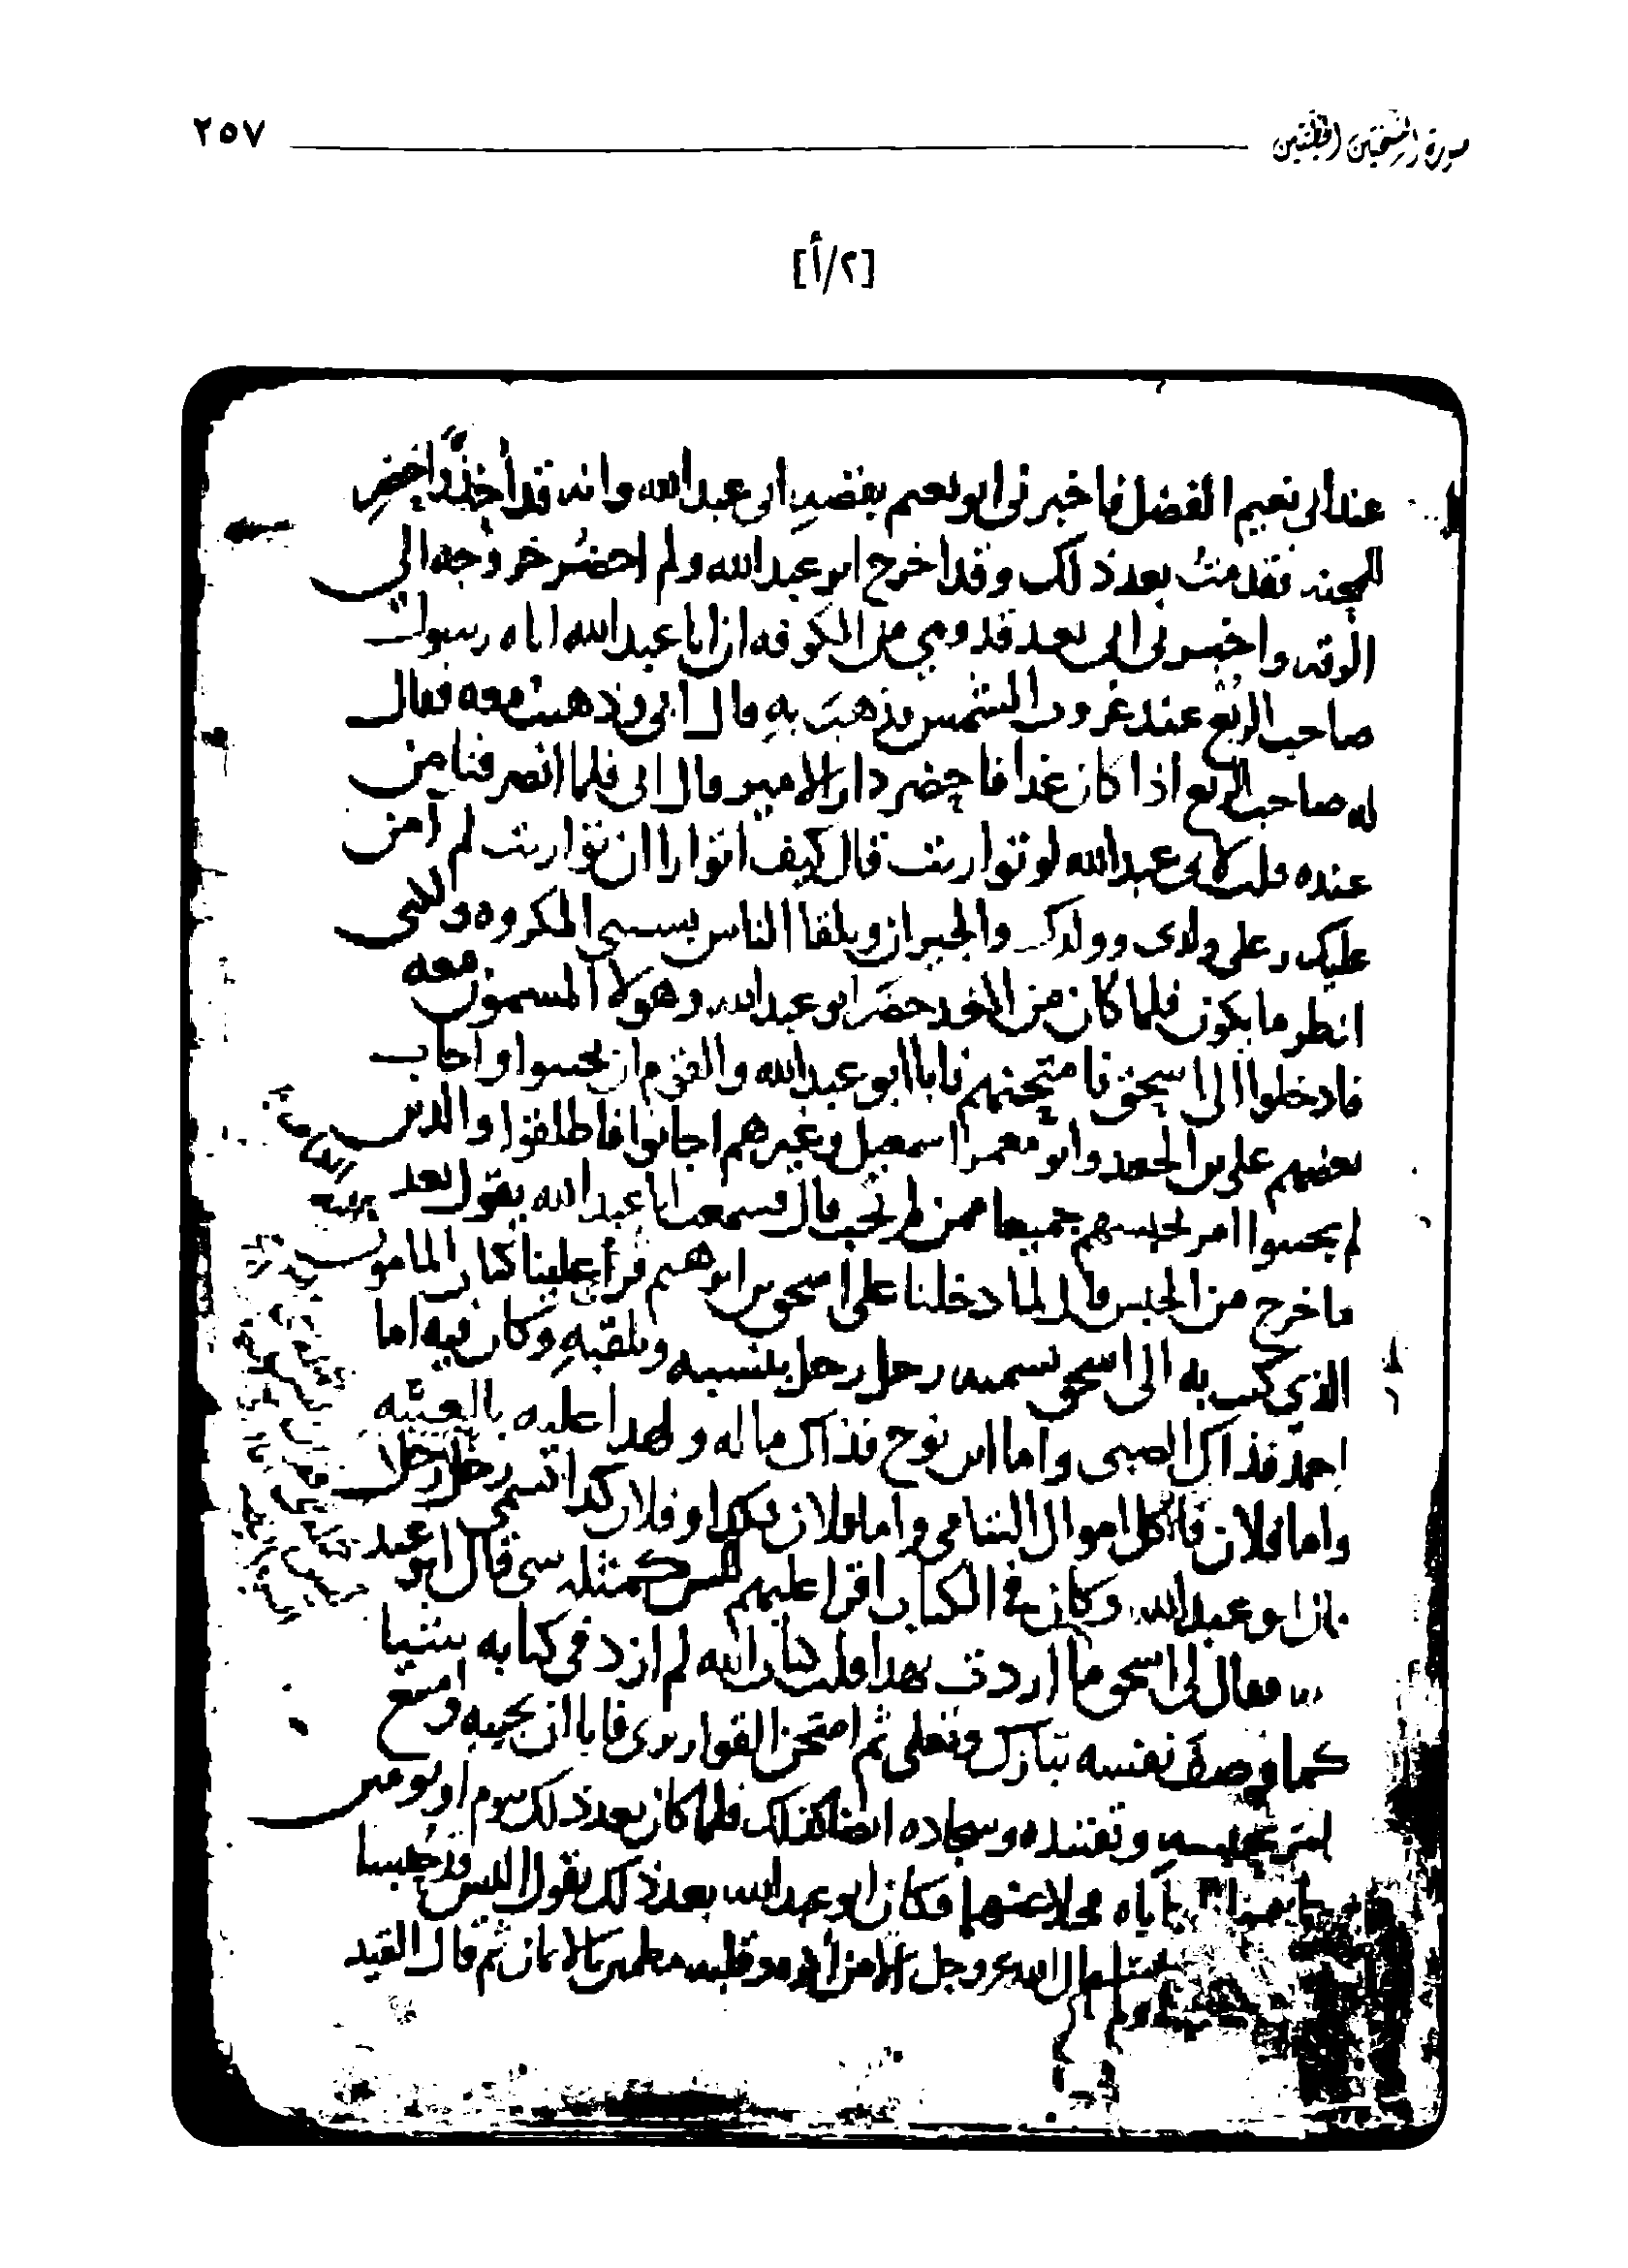 صورة النسختين الخطيتين ٢٥٧
[٢/أ]
عند أبى نعيم الفضل فاخبرنى ابو نعيم بقصه ابى عبدالله وانه قد أخذ ليحضر
للمحنه فقدمت بعد ذلك وقد اخرج ابو عبدالله ولم احضر خروجه الى
الرقه واخبرنى ابى بعد قدومي من الكوفه ان ابا عبدالله اتاه رسول
صاحب الربع عند غروب الشمس فذهب به قال ابى وذهبت معه فقال
له صاحب الربع اذا كان غدا فاحضر دار الامير قال ابى فلما انصرفنا من
عنده قلت لابى عبدالله لو تواريت قال كيف اتوارا ان تواريت لم آمن
عليك وعلى ولدى وولدك والجيران ويلقا الناس بسببى المكروه ولكنى
انظر ما يكون فلما كان من الغد حضر ابو عبدالله وهولا المسمون معه
فادخلوا الى اسحق فامتحنهم فابا ابو عبدالله والقوم ان يجيبوا واجاب
بعضهم على بن الجعد وابو معمر اسمعيل وغيرهم اجابوا فاطلقوا والذين
لم يجيبوا امر بحبسهم جميعا ممن لم يجب قال فسمعت ابا عبدالله يقول بعد
ما خرج من الحبس قال لما دخلنا على اسحق بن ابرهيم قرأ علينا كتاب المامون
الذي كتب به الى اسحق نسميه رجل رجل بنسبه وبلقبه وكان فيه اما
احمد فذاك الصبى واما ابن نوح فذاك ماله ولهدا عليه بالعينه
واما فلان فاكل اموال اليتامى واما فلان بكدا وفلان كدا تسمى رجل رجل
ابو عبدالله وكان فى الكتاب اقرا عليهم ليس كمثله شى قال ابو عبد
فقال لى اسحق ما اردت بهدا قلت كتاب الله لم ازد فى كتابه شيا
كما وصف نفسه تبارك وتعلى ثم امتحن القواريرى فابا ان يجيبه وامتنع
وتقييده وسجاده ايضا كذلك فلما كان بعد ذلك بيوم او يومين
فخلا عنهما فكان ابو عبدالله بعد ذلك يقول اليس
قال الله عز وجل الا من أكره وقلبه مطمين بالايمان ثم قال القيد